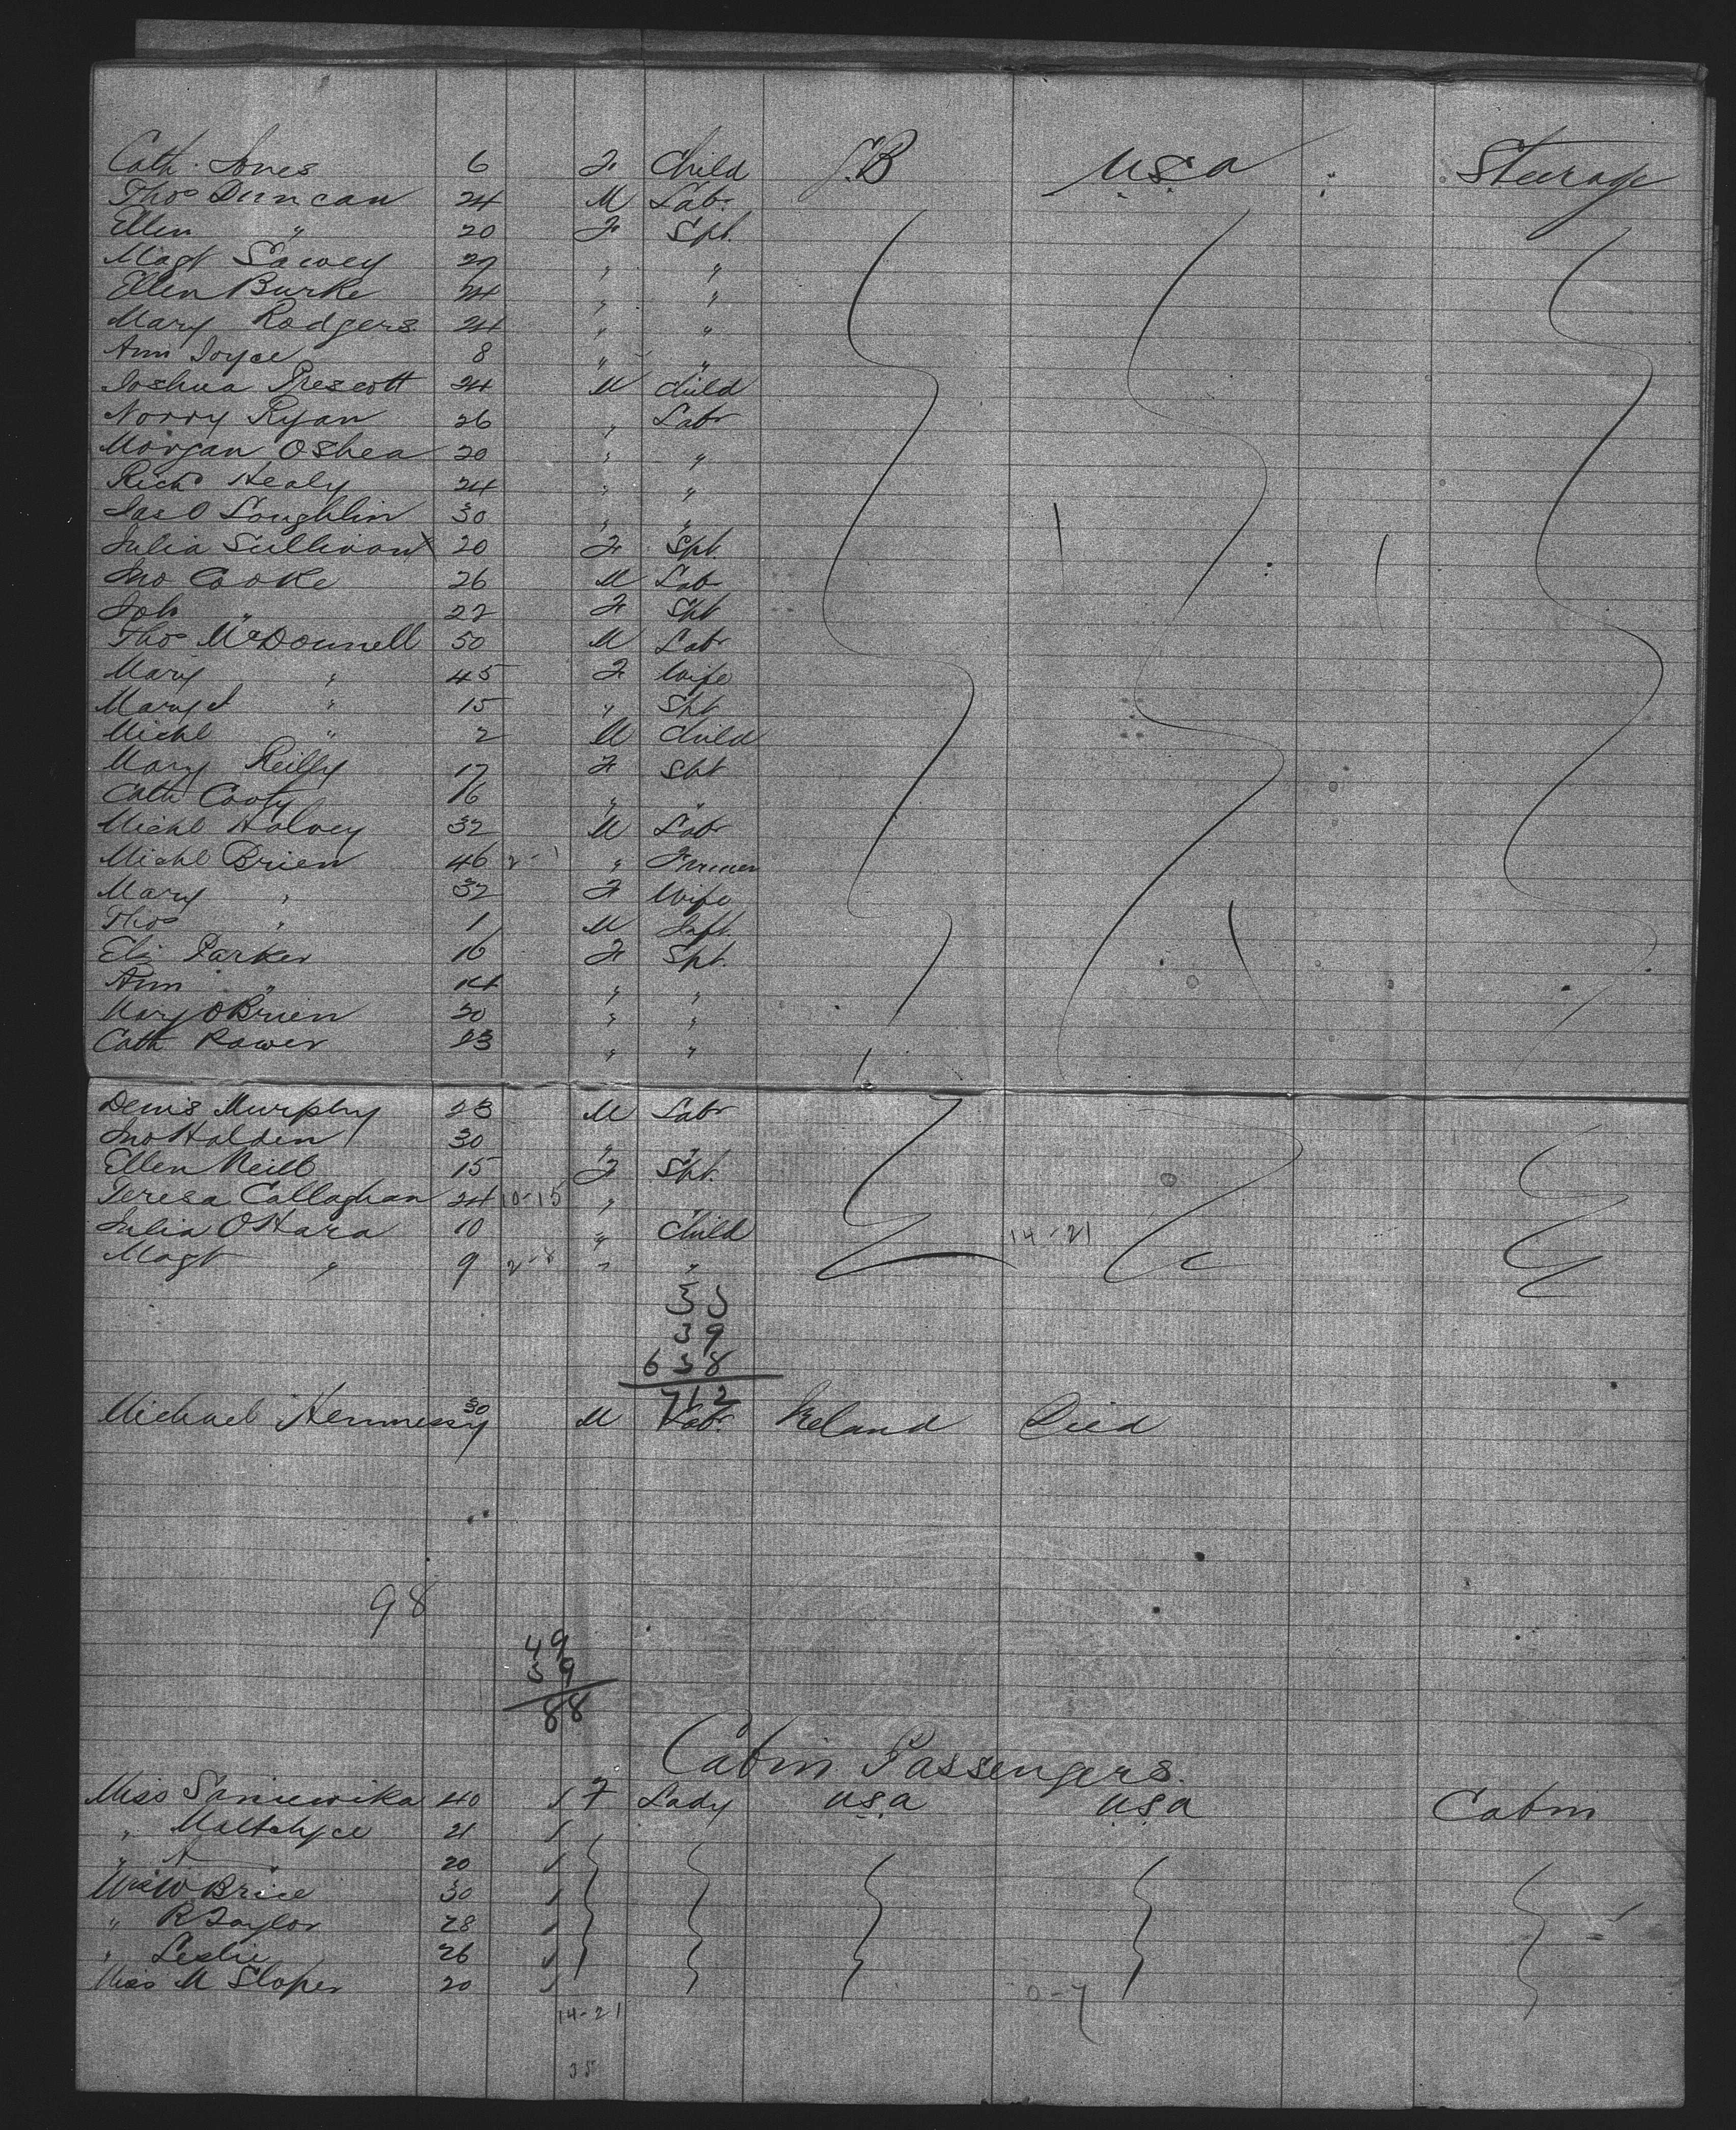 Cath. Jones 6 F Child G.B U.S.A Steerage
Thos Duncan 24 M Labr
Ellen " 20 F Spt.
Magt 29 " "
Ellen Burke 24 " "
Mary Rodgers 24 " "
Ann Joyce 8 " "
Joshua Prescott 24 M Child
Norry Ryan 26 " Labr
Morgan OShea 20 " "
Richd Healy 24 " "
Jas O Loughlin 30 " "
Julia Sullivan 20 F Spt.
Jno Cooke 26 M Labr
" 22 F Spt
Thos McDonnell 50 M Labr
Mary " 45 F Wife
Margt " 15 " Spt
Michl " 2 M Child
Mary Reilly 17 F Spt
Cath 16 " "
Michl Halvey 32 M Labr
Michl Brien 46 2-1 " Farmer
Mary " 32 F Wife
Thos " 1 M Inft.
Eliz Parker 16 F Spt.
Ann " 14 " "
Mary OBrien 20 " "
Cath Power 23 " "
Denis Murphy 23 M Labr
Jno Holden 30 " "
Ellen Neill 15 F Spt.
Teresa Callaghan 24 10-15 "
Julia OHara 10 " Child 14-21
Magt " 9 2-8 " "
35
39
638
712
Michael Hennessy 30 M Labr. Ireland Died
98
49
39
88
Cabin Passengers.
Miss 40 1 F Lady U.S.A U.S.A Cabin
" 21 1 "
" A 20 1
W Brice 30 1
" R Taylor 28 1
" Leslie 26 1
Miss M Sloper 20 1
14-21
35